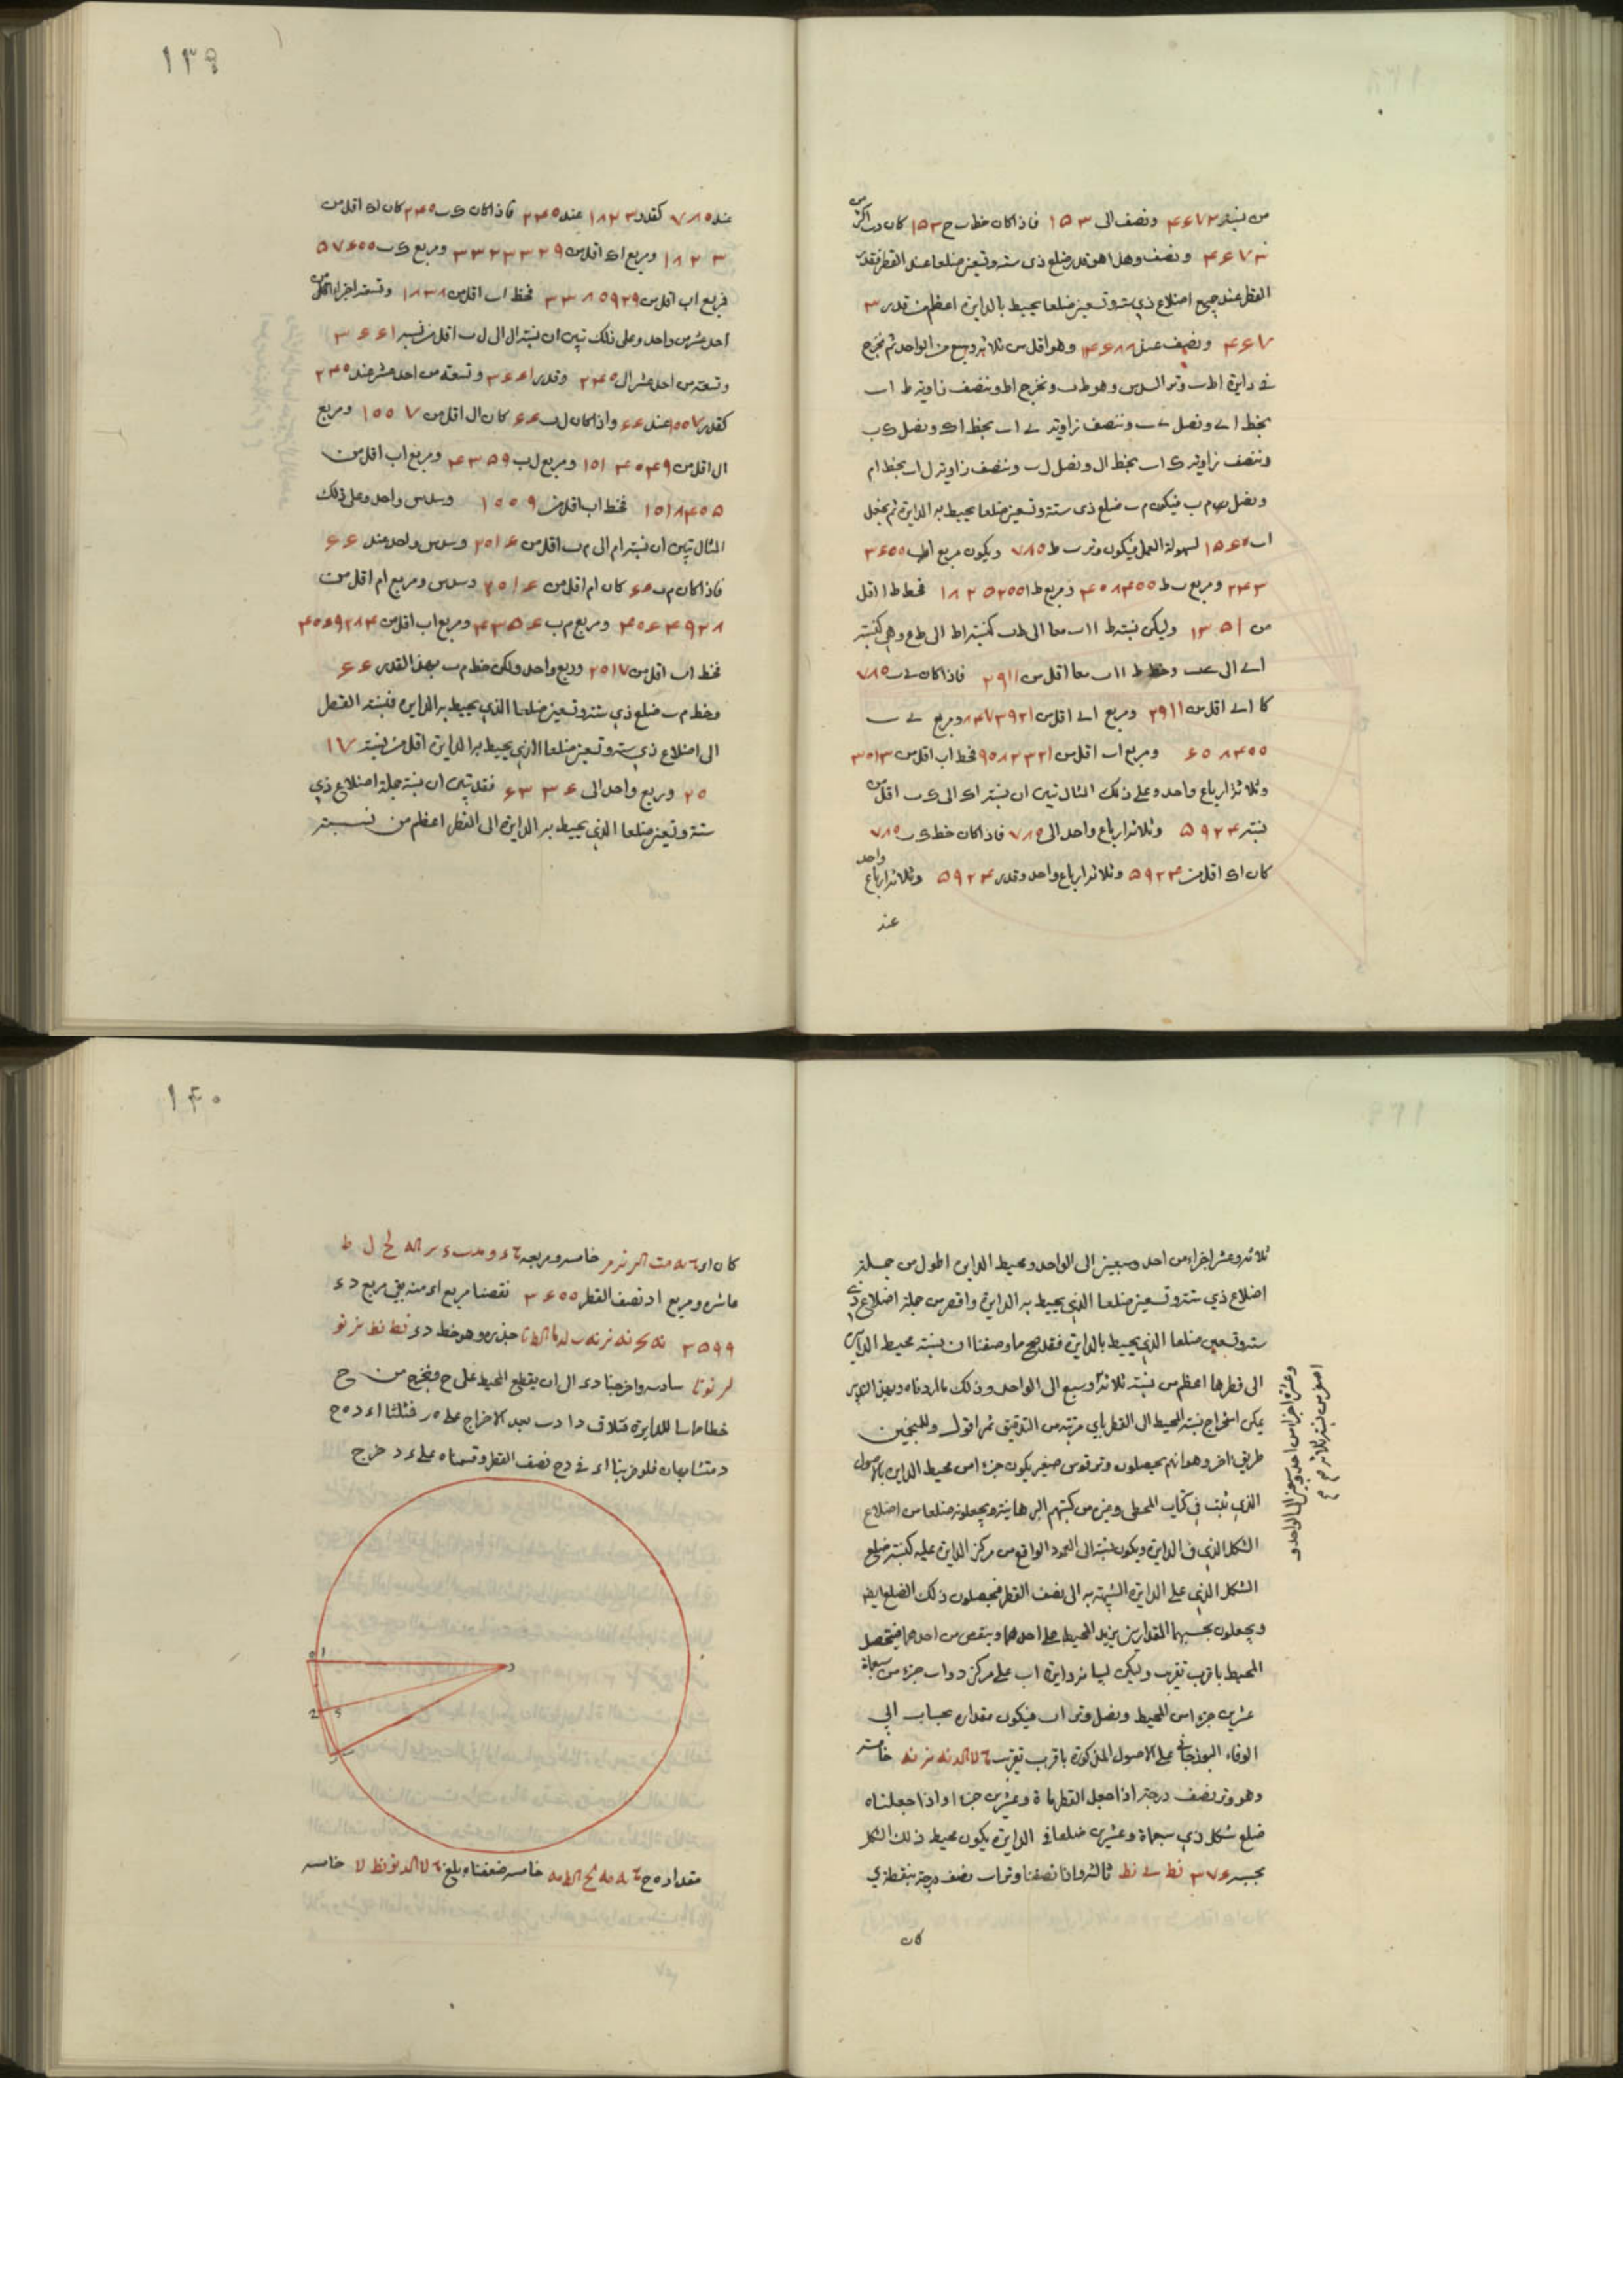 من نسبة ٤٦٧٣ ونصف الى ١٥٣ فاذا كان خط ب ح ١٥٣ كان د ب اكثر من
٤٦٧٣ ونصف وهذا هو قدر ضلع ذى ستة وتسعين ضلعا عند القطر فقدر
القطر عند جميع اضلاع ذي ستة وتسعين ضلعا يحيط بالدايرة اعظم من قدر ٣
٤٦٧ ونصف عند ١٤٦٨٨ وهو اقل من ثلاثة وسبع من الواحد ثم نخرج
في دايرة اط ب وتر السدس وهو ط ب ونخرج اط وننصف زاوية ط ا ب
بخط اے ونصل ے ب وننصف زاوية ے ا ب بخط ا ك ونصل ك ب
وننصف زاوية ك ا ب بخط ال ونصل ل ب وننصف زاوية ل ا ب بخط ام
ونصل م ب فيكون م ب ضلع ذى ستة وتسعين ضلعا يحيط به الدايرة ثم نجعل
اب ١٥٦٠ لسهولة العمل فيكون وتر ب ط ٧٨٠ ويكون مربع اب ٣٦٠٠
٢٤٣ ومربع ب ط ٦٠٨٤٠٠ ومربع ط ا ١٨٢٥٢٠٠ فخط ط ا اقل
من ١٣٥١ وليكن نسبة ط ا اب معا الى ط ب كنسبة اط الى ط ع وهى كنسبة
اے الى ے ب وخط ط ا اب معا اقل من ٢٩١١ فاذا كان ے ب ٧٨٠
كا اے اقل من ٢٩١١ ومربع اے اقل من ٨٤٧٣٩٢١ ومربع ے ب
٦٠٨٤٠٠ ومربع اب اقل من ٩٠٨٢٣٢١ فخط اب اقل من ٣٠١٣
وثلاثة ارباع واحد وعلى ذلك المثال تبين ان نسبة اك الى ك ب اقل من
نسبة ٥٩٢٤ وثلاثة ارباع واحد الى ٧٨٠ فاذا كان خط ك ب ٧٨٠
كان اك اقل من ٥٩٢٤ وثلاثة ارباع واحد وقدر ٥٩٢٤ وثلاثة ارباع واحد
عند
١٣٩
عند ٧٨٠ كقدر ١٨٢٣ عند ٢٤٠ فاذا كان ك ب ٢٤٠ كان اك اقل من
١٨٢٣ ومربع اك اقل من ٣٣٢٣٣٢٩ ومربع ك ب ٥٧٦٠٠
فمربع اب اقل من ٣٣٨٠٩٢٩ فخط اب اقل من ١٨٣٨ وتسعة اجزاء من
احد عشر من واحد وعلى ذلك تبين ان نسبة ال الى ل ب اقل من نسبة ٣٦٦١
وتسعة من احد عشر الى ٢٤٠ وقدر ٣٦٦١ وتسعة من احد عشر عند ٢٤٠
كقدر ١٠٠٧ عند ٦٦ واذا كان ل ب ٦٦ كان ال اقل من ١٠٠٧ ومربع
ال اقل من ١٠١٤٠٤٩ ومربع ل ب ٤٣٥٩ ومربع اب اقل من
١٠١٨٤٠٥ فخط اب اقل من ١٠٠٩ وسدس واحد وعلى ذلك
المثال تبين ان نسبة ام الى م ب اقل من ٢٠١٦ وسدس واحد عند ٦٦
فاذا كان م ب ٦٦ كان ام اقل من ٢٠١٦ وسدس ومربع ام اقل من
٤٠٦٤٩٢٨ ومربع م ب ٤٣٥٦ ومربع اب اقل من ٤٠٦٩٢٨٤
فخط اب اقل من ٢٠١٧ وربع واحد ولكن خط م ب بهذا القدر ٦٦
وخط م ب ضلع ذي ستة وتسعين ضلعا الذي يحيط به الدايرة فنسبة القطر
الى اضلاع ذي ستة وتسعين ضلعا الذي يحيط به الدايرة اقل من نسبة ١٧
٢٠ وربع واحد الى ٦٣٣٦ فقد تبين ان نسبة جملة اضلاع ذي
ستة وتسعين ضلعا الذي يحيط به الدايرة الى القطر اعظم من نسبة
ثلاثة وعشرة اجزاء من احد وسبعين الى الواحد ومحيط الدايرة اطول من جملة
اضلاع ذي ستة وتسعين ضلعا الذي يحيط به الدايرة واقصر من جملة اضلاع ذي
ستة وتسعين ضلعا الذي يحيط بالدايرة فقد صح ما وصفنا ان نسبة محيط الدايرة
الى قطرها اعظم من نسبة ثلاثة وسبع الى الواحد وذلك ما اردناه وبهذا التدبير
يمكن استخراج نسبة المحيط الى القطر باي مرتبة من التدقيق ثم اقول وللمنجمين
طريق اخر وهو انهم يحصلون وتر قوس صغير يكون جزءا من محيط الداير بالاصول
الذي تثبت في كتاب المجسطى وغيره من كتبهم البرهانية ويجعلونه ضلعا من اضلاع
الشكل الذي في الدايرة ويكون نسبته الى العمود الواقع من مركز الدايرة عليه كنسبة ضلع
الشكل الذي على الدايرة الشبيه به الى نصف القطر فيحصلون ذلك الضلع ايضا
ويجعلون بحسبهما المقدارين يزيد المحيط على احدهما وينقص من احدهما فيتحصل
المحيط باقرب تقريب وليكن لبيانه دايرة اب على مركز د واب جزء من سبعماة
عشرين جزءا من المحيط ونصل وتر اب فيكون مقداره بحساب ابي
الوفاء البوزجاني على الاصول المذكورة باقرب تقريب خامسة
وهو وتر نصف درجة اذا جعل القطر ماة وعشرين جزءا واذا جعلناه
ضلع شكل ذي سبعماة وعشرين ضلعا في الدايرة يكون محيط ذلك الشكل
بحسبه ٣٧٦ نط ے نط ثالثة واذا نصفنا وتر اب نصف درجة بنقطة ي
كان
اصغر من نسبة ثلاثة
وعشرة اجزاء من احد وسبعين الى الواحد و
١٤٠
خامسة ومربعه
عاشرة ومربع اد نصف القطر ٣٦٠٠ نقصنا مربع اء منه بقي مربع د ء
٣٥٩٩ جذره وهو خط د ء نط نط نز نو
سادسة واخرجنا د ء الى ان يقطع المحيط على ح ونخرج من ح
خطا مماسا للدايرة فتلاقى د ا د ب بعد الاخراج على ه ر فمثلثا ا ء د ه ح
د متشابهان فلو ضربنا ا ء في د ح نصف القطر وقسمناه على ء د خرج
مقدار ه ح خامسة ضعفناه بلغ خامسة